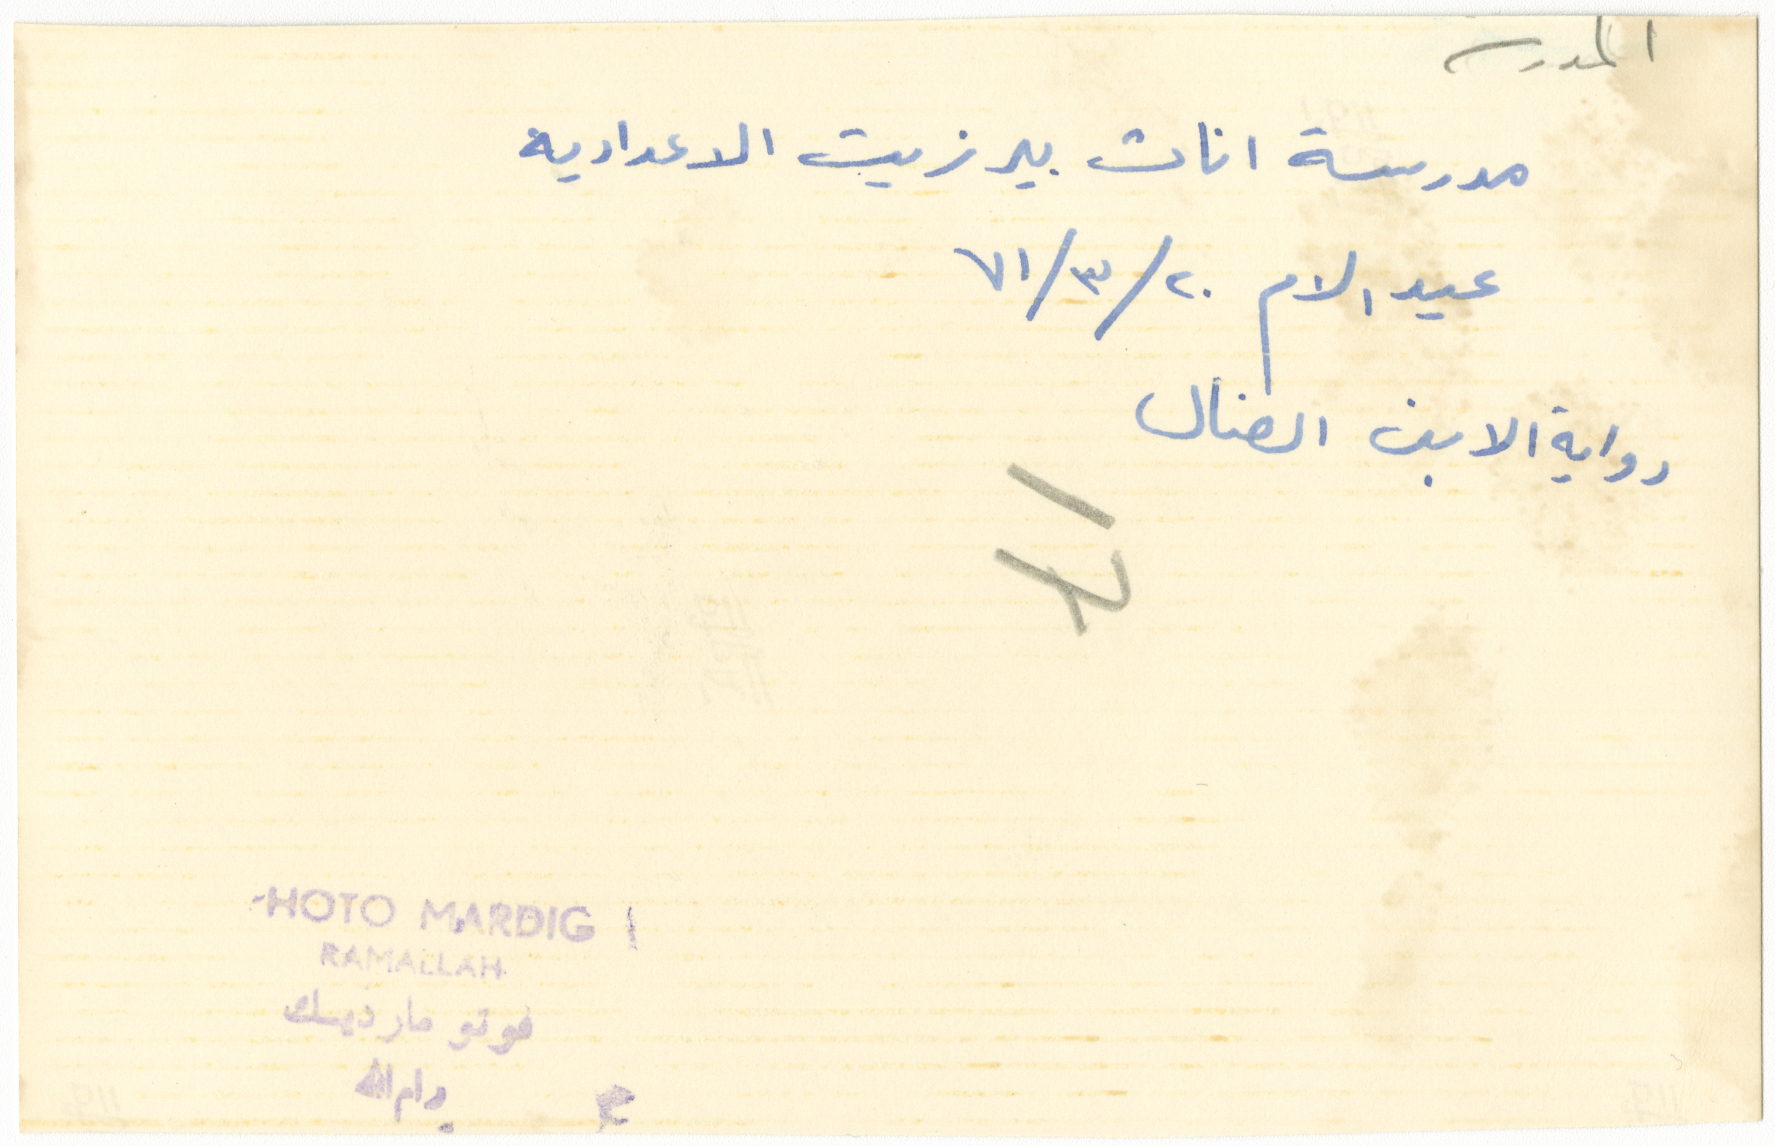 المدرسة
مدرسة اناث بير زيت الاعدادية
عيد الام ٢٠/٣/٧١
رواية الابن الضال
HOTO MARDIG
RAMALLAH
فوتو مارديك
رام الله